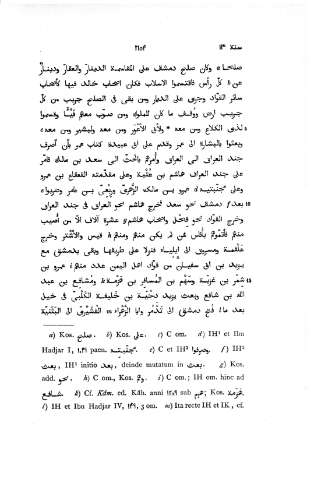 سنة ١٣ ٢١٥٤
صلحا ۵ وكان صلح دمشق على المقاسمة الدينار والعقار ودينار
عن ۵ كلّ رأس فاقتسموا الاسلاب فكان اصحاب خالد فيها كأصحاب
سائر القوّاد وجرى على الديار ومن بقى فى الصلح جريب من كلّ
جريب ارض ووقف ما كان للملوك ومن صوّب معهم فيئا وقسموا
لذى الكلاع ومن معه ولأبى الأعور ومن معه ولبشير ومن معه
وبعثوا بالبشارة الى عمر وقدم على ابى عبيدة كتاب عمر بأن اصرف
جند العراق الى العراق وأمرهم بالحثّ الى سعد بن مالك فأمّر
على جند العراق هاشم بن عتبة وعلى مقدّمته القعقاع بن عمرو
وعلى مجنّبتيه عمرو بن مالك الزهرىّ وربعىّ بن عامر وضربوا
بعد دمشق نحو سعد فخرج هاشم نحو العراق فى جند العراق
وخرج القوّاد نحو فحل واصحاب هاشم عشرة آلاف الّا من أصيب
منهم فأتمّوهم بأناس ممّن لم يكن منهم ومنهم قيس والأشتر وخرج
علقمة ومسروق الى ايلياء فنزلا على طريقها وبقى بدمشق مع
يزيد بن ابى سفيان من قوّاد اهل اليمن عدد منهم عمرو بن
شمر بن غزيّة وسهم بن المسافر بن هزمة ومشافع بن عبد
الله بن شافع وبعث يزيد دحية بن خليفة الكلبىّ فى خيل
بعد ما فتح دمشق الى تدمر وأبا الزهراء القشيرىّ الى البثنيّة
a) Kos. صلح. b) Kos. على. c) C om. d) IH¹ et Ibn
Hadjar I, ١,٢٩ paen. مجنّبته. e) C et IH² وصرفوا. f) IH²
بعث, IH¹ initio بعد, deinde mutatum in بعث. g) Kos.
add. نحو. h) C om., Kos. ولم. i) C om.; IH om. hinc ad
شافع. k) Cf. Kâm. ed. Kâh. anni ١٢٠٩ sub عبس; Kos. هزمة.
l) IH et Ibn Hadjar IV, ١٢٩, 3 om. m) Ita recte IH et IK, cf.